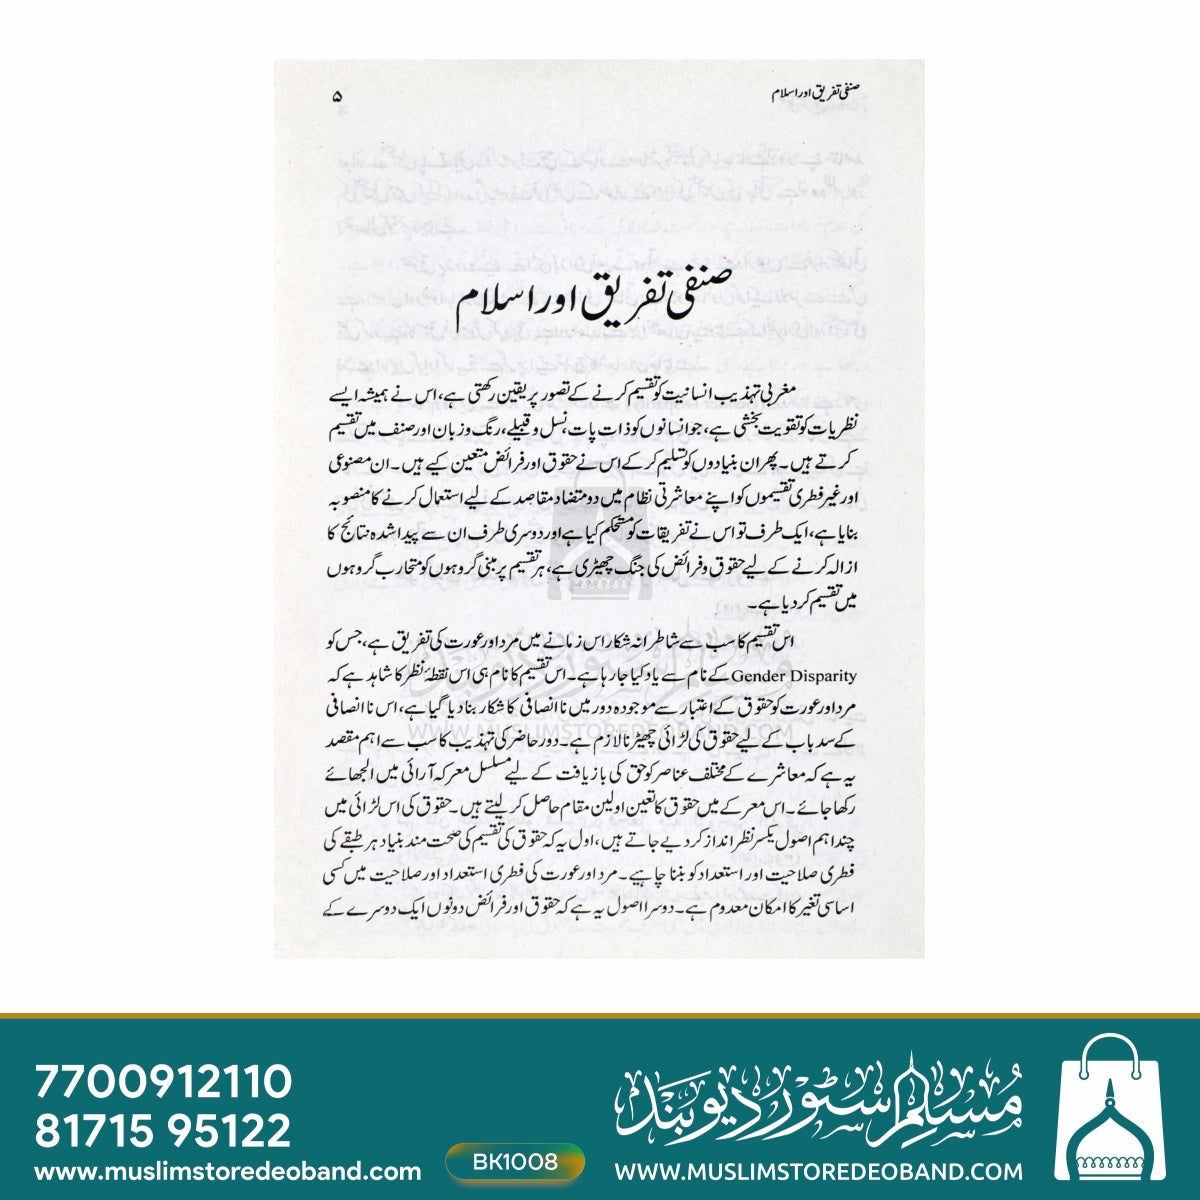 صنفی تفریق اور اسلام
۵
صنفی تفریق اور اسلام
مغربی تہذیب انسانیت کو تقسیم کرنے کے تصور پر یقین رکھتی ہے، اس نے ہمیشہ ایسے
نظریات کو تقویت بخشی ہے، جو انسانوں کو ذات پات، نسل و قبیلے، رنگ و زبان اور صنف میں تقسیم
کرتے ہیں۔ پھر ان بنیادوں کو تسلیم کر کے اس نے حقوق اور فرائض متعین کیے ہیں۔ ان مصنوعی
اور غیر فطری تقسیموں کو اپنے معاشرتی نظام میں دو متضاد مقاصد کے لیے استعمال کرنے کا منصوبہ
بنایا ہے، ایک طرف تو اس نے تفریقات کو مستحکم کیا ہے اور دوسری طرف ان سے پیدا شدہ نتائج کا
ازالہ کرنے کے لیے حقوق و فرائض کی جنگ چھیڑی ہے، ہر تقسیم پر مبنی گروہوں کو متحارب گروہوں
میں تقسیم کر دیا ہے۔
اس تقسیم کا سب سے شاطرانہ شکار اس زمانے میں مرد اور عورت کی تفریق ہے، جس کو
Gender Disparity کے نام سے یاد کیا جا رہا ہے۔ اس تقسیم کا نام ہی اس نقطۂ نظر کا شاہد ہے کہ
مرد اور عورت کو حقوق کے اعتبار سے موجودہ دور میں نا انصافی کا شکار بنا دیا گیا ہے، اس نا انصافی
کے سد باب کے لیے حقوق کی لڑائی چھیڑنا لازم ہے۔ دور حاضر کی تہذیب کا سب سے اہم مقصد
یہ ہے کہ معاشرے کے مختلف عناصر کو حق کی بازیافت کے لیے مسلسل معرکہ آرائی میں الجھائے
رکھا جائے۔ اس معرکے میں حقوق کا تعین اولین مقام حاصل کر لیتے ہیں۔ حقوق کی اس لڑائی میں
چند اہم اصول یکسر نظر انداز کر دیے جاتے ہیں، اول یہ کہ حقوق کی تقسیم کی صحت مند بنیاد ہر طبقے کی
فطری صلاحیت اور استعداد کو بننا چاہیے۔ مرد اور عورت کی فطری استعداد اور صلاحیت میں کسی
اساسی تغیر کا امکان معدوم ہے۔ دوسرا اصول یہ ہے کہ حقوق اور فرائض دونوں ایک دوسرے کے
مسلم سٹور دیوبند
WWW.MUSLIMSTOREDEOBAND.COM
7700912110
81715 95122
www.muslimstoredeoband.com
BK1008
مسلم سٹور دیوبند
WWW.MUSLIMSTOREDEOBAND.COM